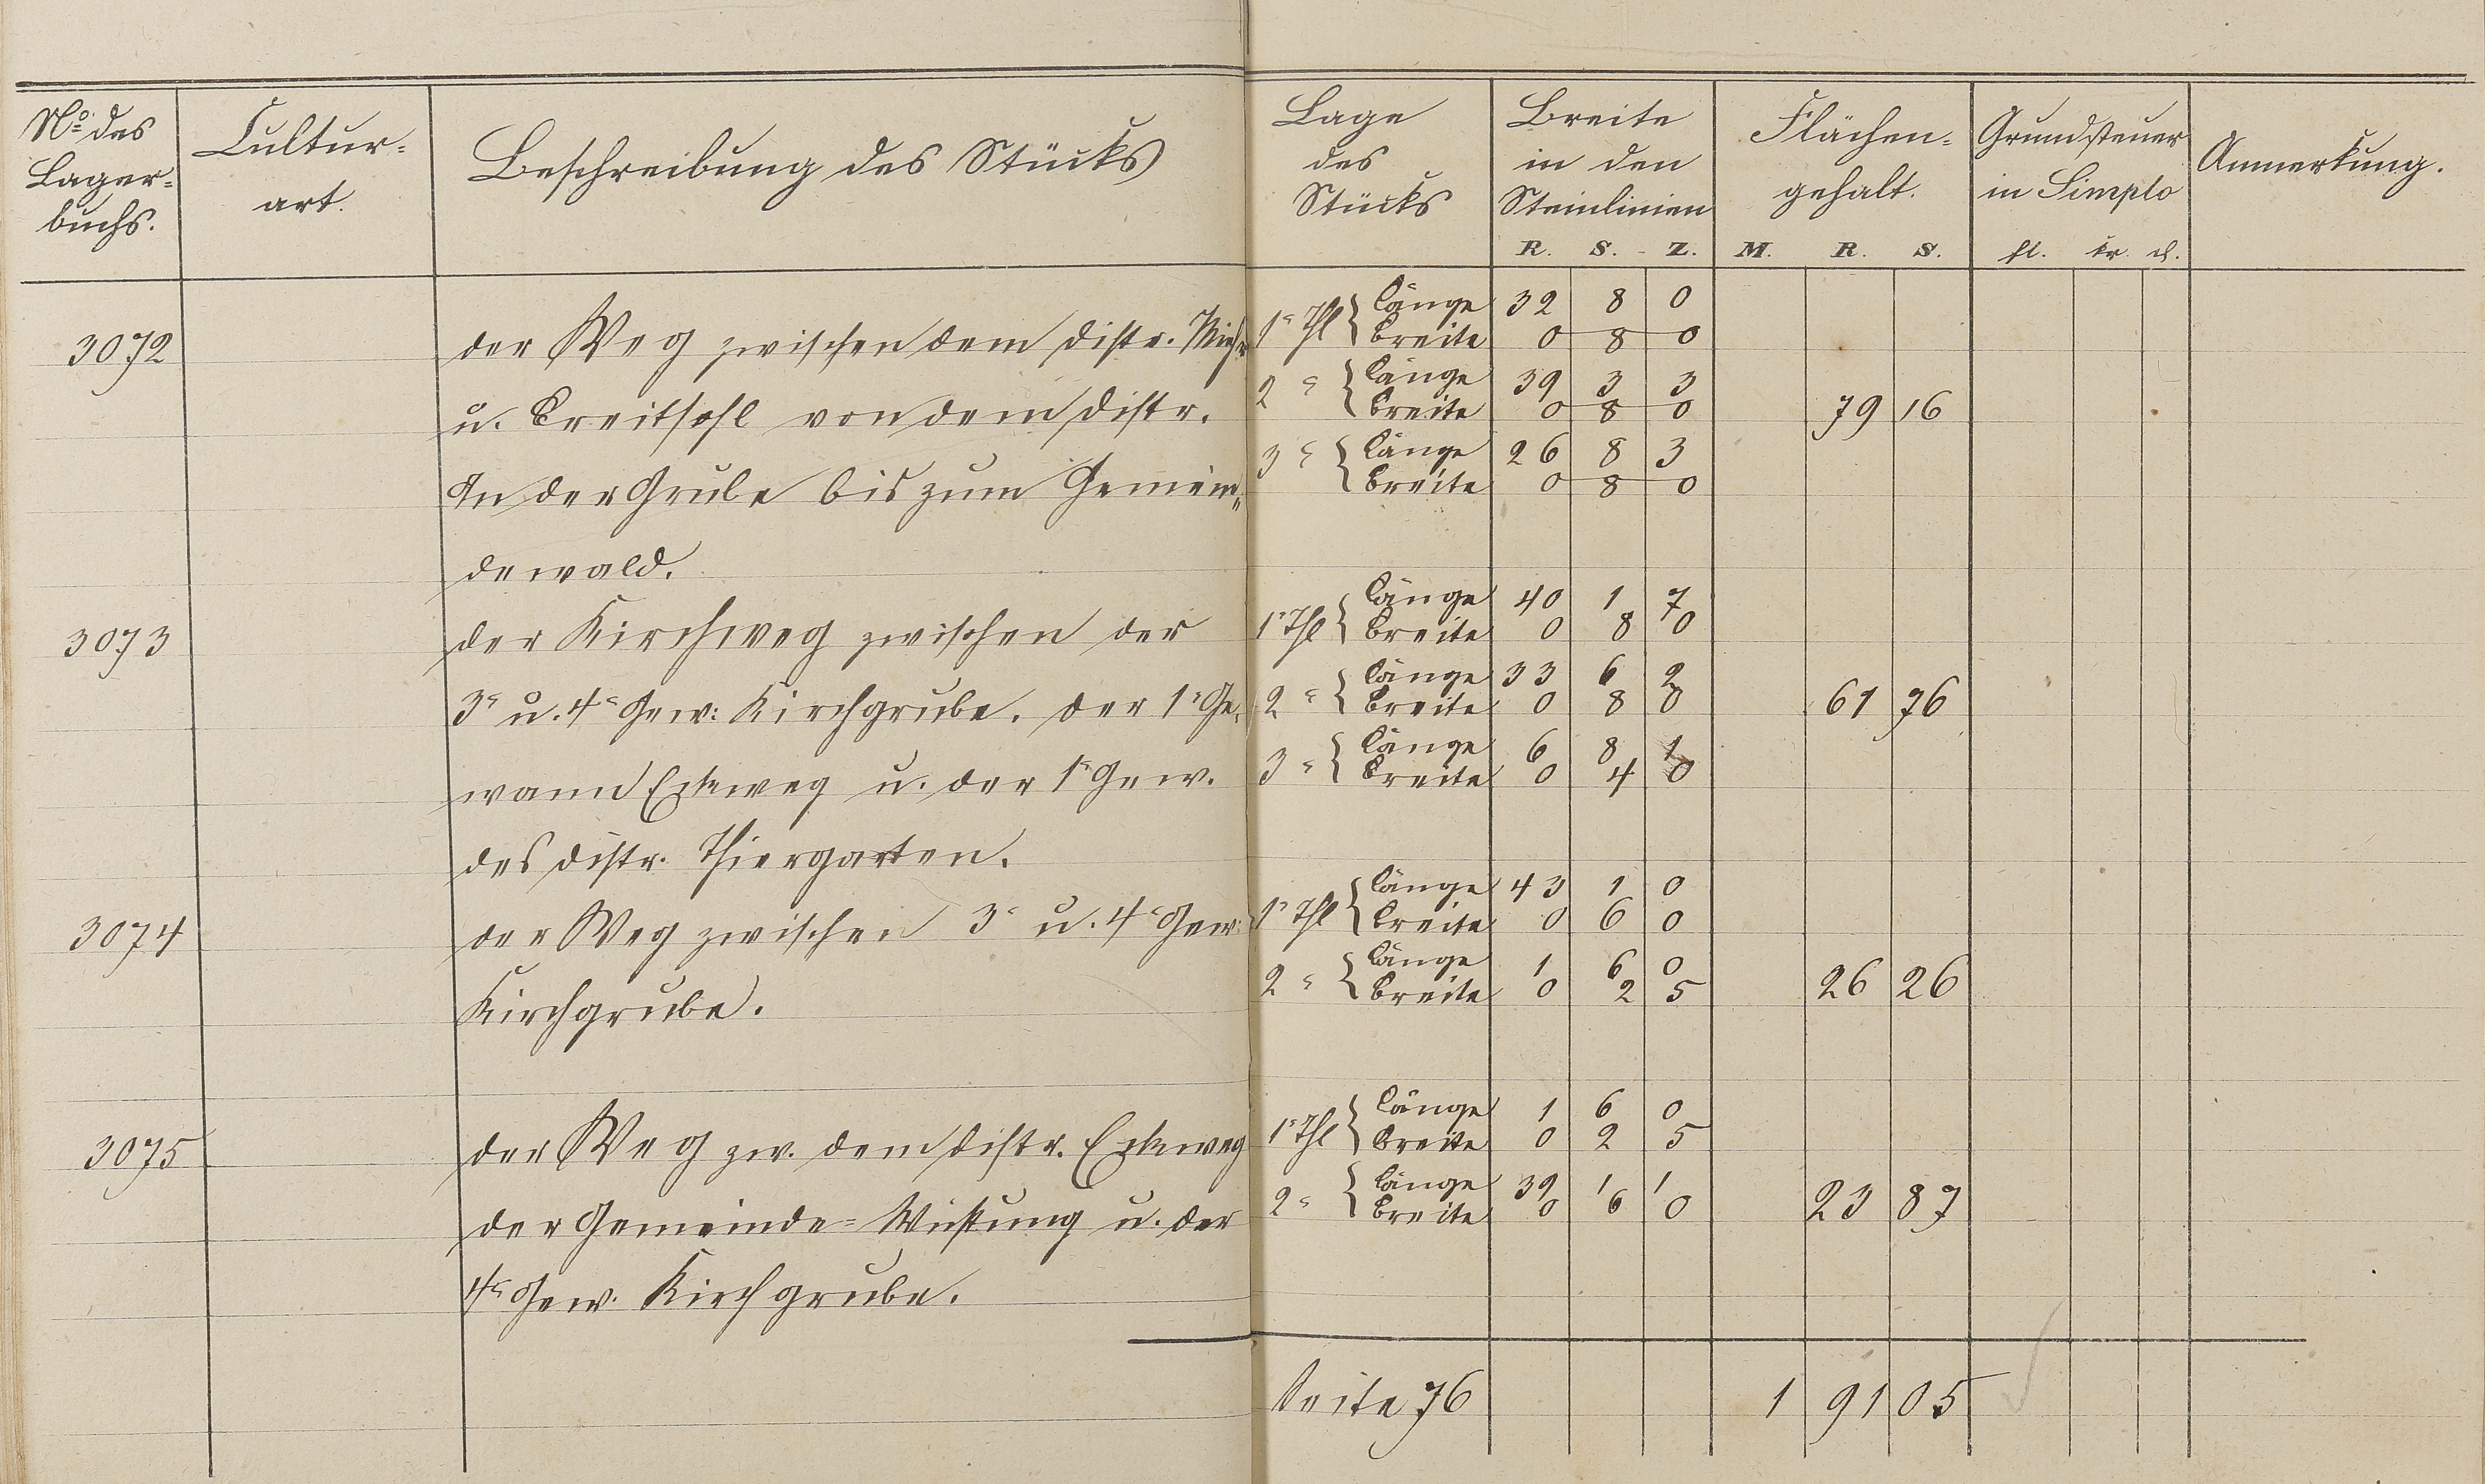 No. des Lager= buchs. | Cultur= art. | Beschreibung des Stücks | Lage des Stücks | Breite in den Steinlinien R. S. Z. | Flächen= gehalt. M. R. S. | Grundsteuer in Simplo fl. kr. d. | Anmerkung.
1r Thl Länge 32 8 0
3072 der Weg zwischen dem Distr. Breite 0 8 0
2r Länge 39 3 3
u. Breitsohl von dem Distr. Breite 0 8 0 79 16
3r Länge 26 8 3
In der Grube bis zum Gemein= Breite 0 8 0
dewald.
1r Thl Länge 40 1 7
3073 der Kirchweg zwischen der Breite 0 8 0
2r Länge 33 6 2
3r u. 4r Gew: Kirchgrube. der 1r Ge= Breite 0 8 0 61 76
3r Länge 6 8 1
wann Eckeweg u. der 1r Gew. Breite 0 4 0
des Distr. Thiergarten.
1r Thl Länge 43 1 0
3074 der Weg zwischen 3r u. 4r Gew: Breite 0 6 0
2r Länge 1 6 0
Kirchgrube. Breite 0 2 5 26 26
1r Thl Länge 1 6 0
3075 der Weg zw. dem Distr. Eckeweg Breite 0 2 5
2r Länge 39 1 1
der Gemeinde=Wüstung u. der Breite 0 6 0 23 87
4r Gew. Kirchgrube.
Seite 76 1 91 05